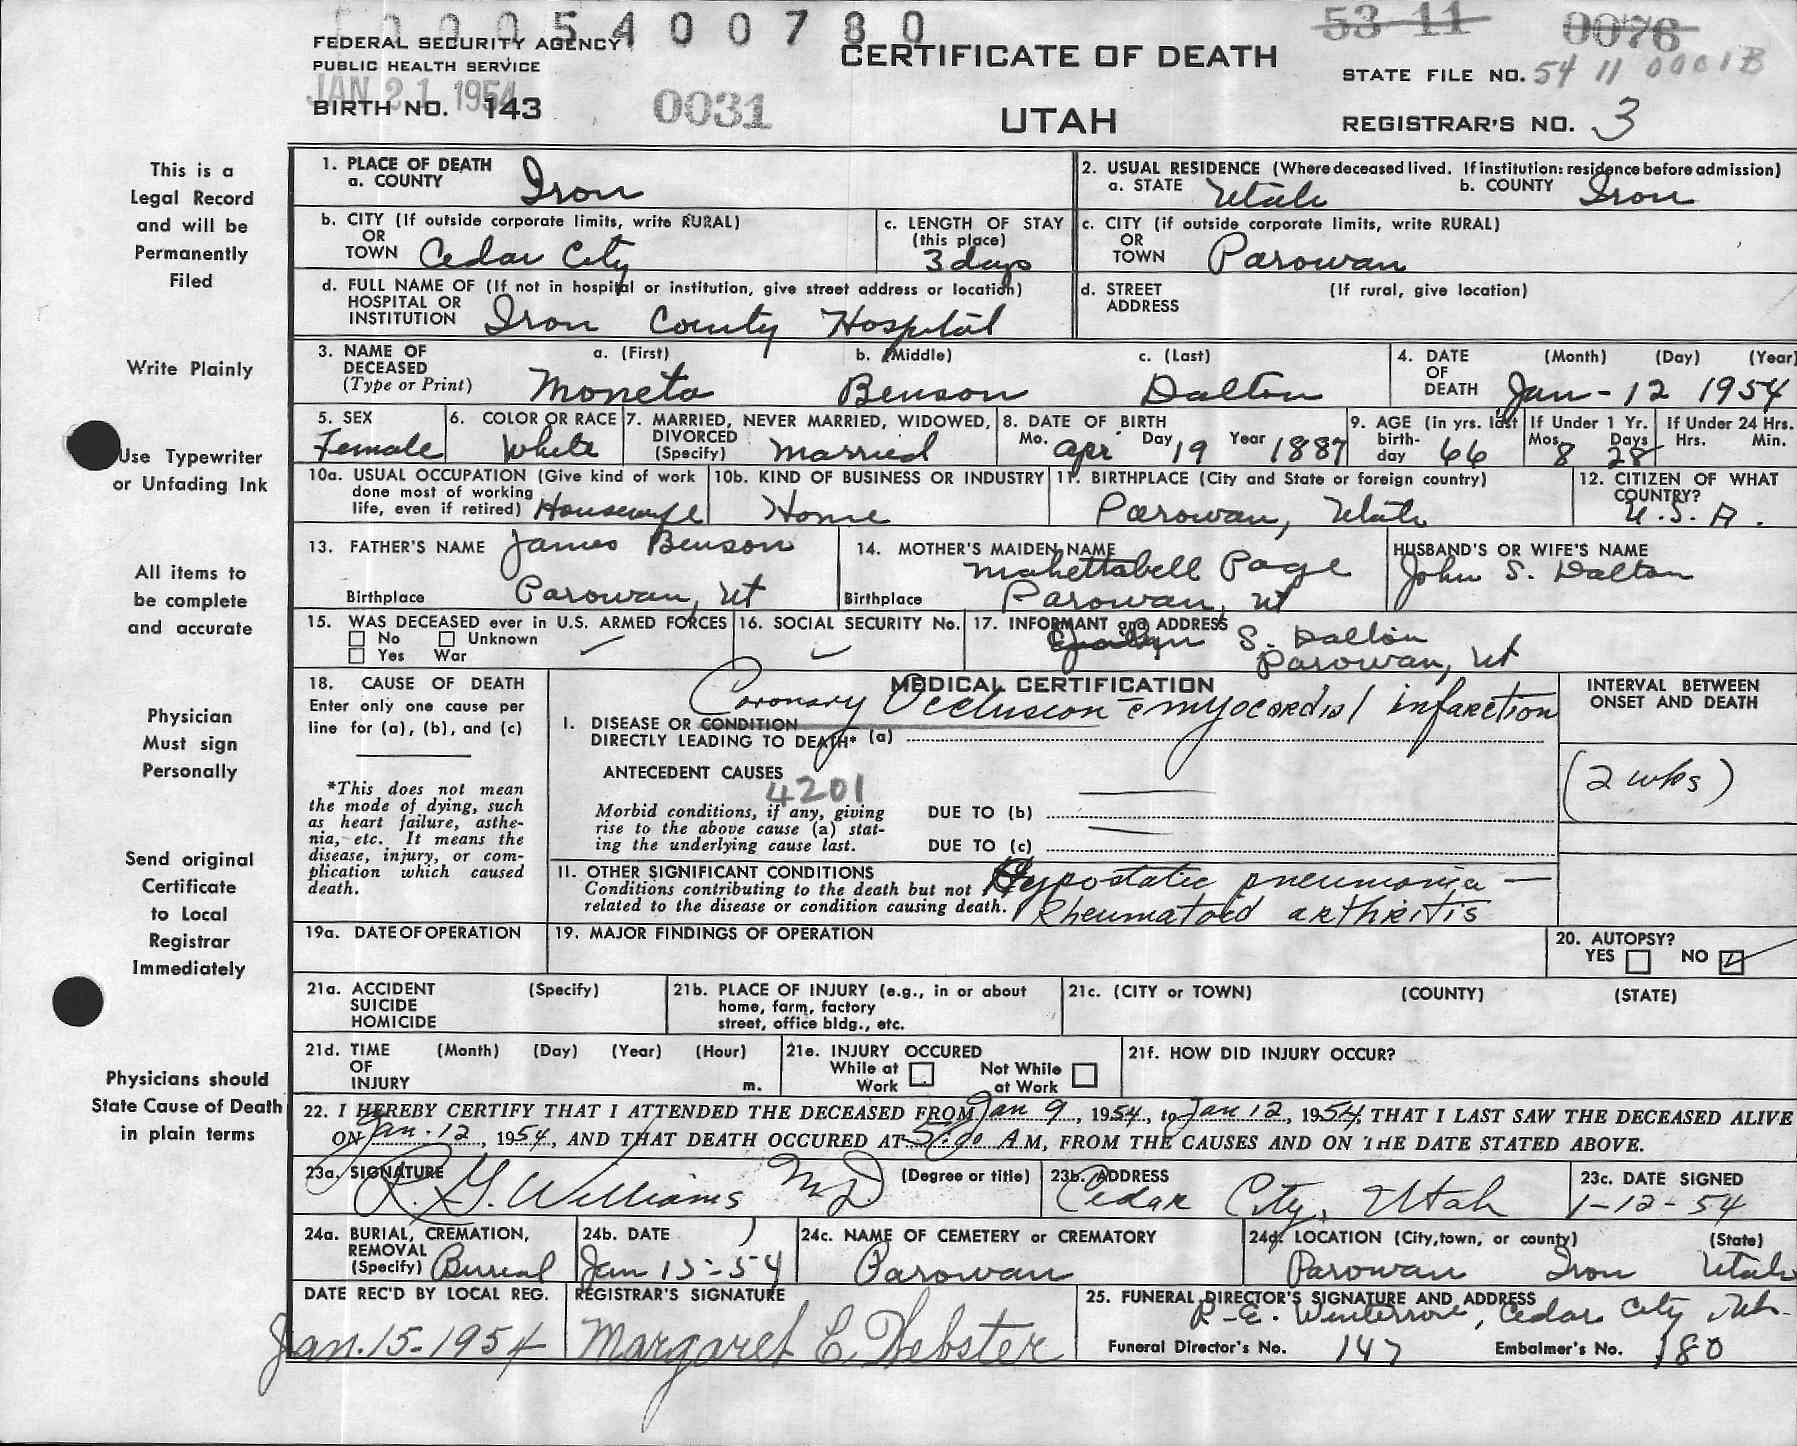 0005400780
FEDERAL SECURITY AGENCY
PUBLIC HEALTH SERVICE
JAN 21 1954
BIRTH NO. 143
0031
CERTIFICATE OF DEATH
UTAH
53 11 0076
STATE FILE NO. 54 11 0001B
REGISTRAR'S NO. 3
This is a
Legal Record
and will be
Permanently
Filed
Write Plainly
Use Typewriter
or Unfading Ink
All items to
be complete
and accurate
Physician
Must sign
Personally
Send original
Certificate
to Local
Registrar
Immediately
Physicians should
State Cause of Death
in plain terms
1. PLACE OF DEATH
a. COUNTY Iron
2. USUAL RESIDENCE (Where deceased lived. If institution: residence before admission)
a. STATE Utah b. COUNTY Iron
b. CITY (If outside corporate limits, write RURAL)
OR
TOWN Cedar City
c. LENGTH OF STAY
(this place)
3 days
c. CITY (if outside corporate limits, write RURAL)
OR
TOWN Parowan
d. FULL NAME OF (If not in hospital or institution, give street address or location)
HOSPITAL OR
INSTITUTION Iron County Hospital
d. STREET (If rural, give location)
ADDRESS
3. NAME OF a. (First) b. (Middle) c. (Last)
DECEASED
(Type or Print) Moneta Benson Dalton
4. DATE (Month) (Day) (Year)
OF
DEATH Jan - 12 1954
5. SEX
Female
6. COLOR OR RACE
White
7. MARRIED, NEVER MARRIED, WIDOWED,
DIVORCED
(Specify) Married
8. DATE OF BIRTH
Mo. Apr Day 19 Year 1887
9. AGE (in yrs. last
birth-
day 66
If Under 1 Yr.
Mos. Days
8 28
If Under 24 Hrs.
Hrs. Min.
10a. USUAL OCCUPATION (Give kind of work
done most of working
life, even if retired) Housewife
10b. KIND OF BUSINESS OR INDUSTRY
Home
11. BIRTHPLACE (City and State or foreign country)
Parowan, Utah
12. CITIZEN OF WHAT
COUNTRY?
U.S.A.
13. FATHER'S NAME James Benson
Birthplace Parowan, Ut
14. MOTHER'S MAIDEN NAME
Mahettabell Page
Birthplace Parowan, Ut
HUSBAND'S OR WIFE'S NAME
John S. Dalton
15. WAS DECEASED ever in U.S. ARMED FORCES
No Unknown
Yes War
16. SOCIAL SECURITY No.
17. INFORMANT and ADDRESS
S. Dalton
Parowan, Ut
18. CAUSE OF DEATH
Enter only one cause per
line for (a), (b), and (c)
*This does not mean
the mode of dying, such
as heart failure, asthe-
nia, etc. It means the
disease, injury, or com-
plication which caused
death.
MEDICAL CERTIFICATION
Coronary Occlusion c myocardial infarction
I. DISEASE OR CONDITION
DIRECTLY LEADING TO DEATH* (a)
ANTECEDENT CAUSES
4201
Morbid conditions, if any, giving
rise to the above cause (a) stat-
ing the underlying cause last.
DUE TO (b)
DUE TO (c)
INTERVAL BETWEEN
ONSET AND DEATH
(2 wks)
II. OTHER SIGNIFICANT CONDITIONS
Conditions contributing to the death but not
related to the disease or condition causing death.
Hypostatic pneumonia —
Rheumatoid arthritis
19a. DATE OF OPERATION
19. MAJOR FINDINGS OF OPERATION
20. AUTOPSY?
YES NO
21a. ACCIDENT (Specify)
SUICIDE
HOMICIDE
21b. PLACE OF INJURY (e.g., in or about
home, farm, factory
street, office bldg., etc.
21c. (CITY or TOWN) (COUNTY) (STATE)
21d. TIME (Month) (Day) (Year) (Hour)
OF
INJURY m.
21e. INJURY OCCURED
While at Not While
Work at Work
21f. HOW DID INJURY OCCUR?
22. I HEREBY CERTIFY THAT I ATTENDED THE DECEASED FROM Jan 9, 1954, to Jan 12, 1954, THAT I LAST SAW THE DECEASED ALIVE
ON Jan. 12, 1954, AND THAT DEATH OCCURED AT 5:00 A M, FROM THE CAUSES AND ON THE DATE STATED ABOVE.
23a. SIGNATURE (Degree or title)
R. G. Williams MD
23b. ADDRESS
Cedar City, Utah
23c. DATE SIGNED
1-12-54
24a. BURIAL, CREMATION,
REMOVAL
(Specify) Burial
24b. DATE
Jan 15-54
24c. NAME OF CEMETERY or CREMATORY
Parowan
24d. LOCATION (City, town, or county) (State)
Parowan Iron Utah
DATE REC'D BY LOCAL REG.
Jan. 15-1954
REGISTRAR'S SIGNATURE
Margaret E. Webster
25. FUNERAL DIRECTOR'S SIGNATURE AND ADDRESS
Cedar City
Funeral Director's No. 147 Embalmer's No. 180